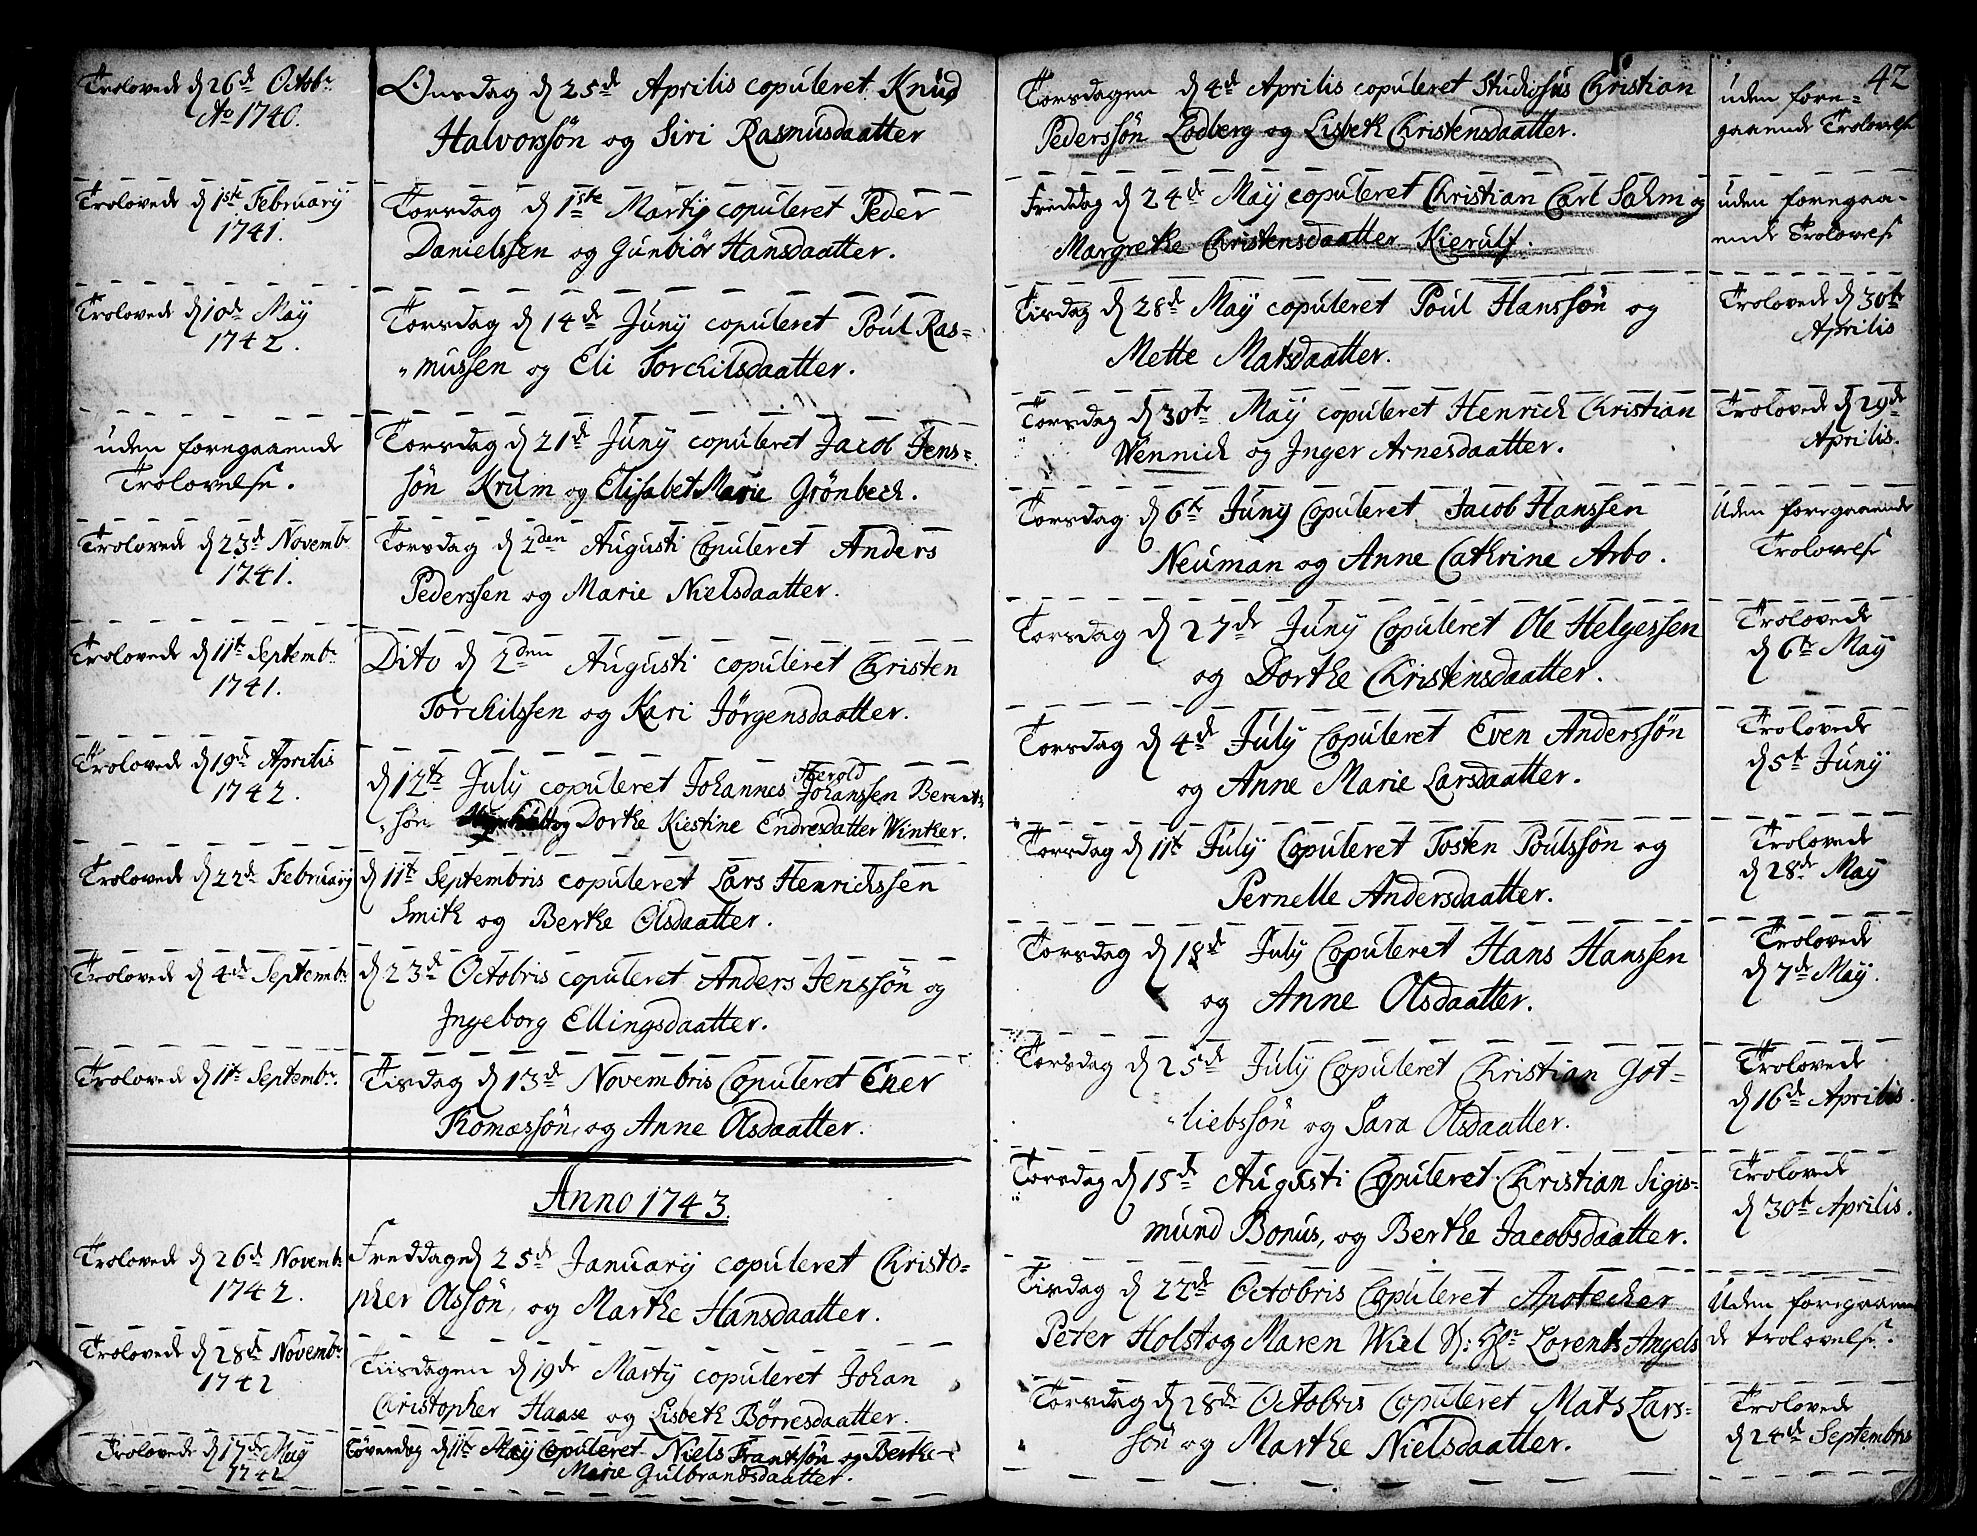 Trolovede d 26de Octobr
Ao 1740.
Onsdag d 25de Aprilis copuleret Knud
Halvorssön og Siri Rasmusdaatter
Trolovede d 1ste February
1741.
Torsdag d 1ste Martij copuleret Peder
Danielssen og Gunbiör Hansdaatter.
Trolovede d 10de Maÿ
1742.
Torsdag d 14de Junÿ copuleret Poul Ras=
mussen og Eli Torchilsdaatter.
uden foregaaende
Trolovelse.
Torsdag d 21de Junÿ copuleret Jacob Jens=
sön Krum og Elisabet Marie Grönbech.
Trolovede d 23de Novembr
1741.
Torsdag d 2den Augusti Copuleret Anders
Pederssen og Marie Nielsdaatter.
Trolovede d 11te Septembr
1741.
Dito d 2den Augusti copuleret Christen
Torchilssen og Kari Jörgensdaatter.
Trolovede d 19de Aprilis
1742.
Herold
d 12te July copuleret Johannes Johanssen Berent=
sön og Dorthe Kiestine Endresdatter Winther.
Trolovede d 22de February
d 11te Septembris copuleret Lars Henrichssen
Smith og Berthe Olsdaatter.
Trolovede d 4de Septembr
d 23de Octobris copuleret Anders Jenssön og
Ingeborg Ellingsdaatter.
Trolovede d 11te Septembr.
Tisdag d 13de Novembris Copuleret Ener
Thomassön, og Anne Olsdaatter.
Anno 1743.
Trolovede d 26de Novembr
1742.
Freddagen d 25de January copuleret Christo=
pher Olssön, og Marthe Hansdaatter.
Trolovede d 28de Novembr
1742
Tiisdagen d 19de Marty copuleret Johan
Christopher Haase og Lisbeth Börresdaatter.
Trolovede d 17de Maÿ
1742
Löverdag d 11te Maÿ Copuleret Niels Frantssön og Berthe
Marie Gulbrandsdaatter.
42
Torsdagen d 4de Aprilis copuleret Studiosus Christian
Pederssön Lodberg og Lisbeth Christensdaatter.
uden fore=
gaaende Trolovelse
Freddag d 24de Maÿ copuleret Christian Carl Sahm og
Margrethe Christensdaatter Kierulf.
uden foregaa=
ende Trolovelse
Tisdag d 28de Maÿ copuleret Poul Hanssön og
Mette Matsdaatter.
Trolovede d 30te
Aprilis
Torsdag d 30te Maÿ copuleret Henrich Christian
Wennich og Inger Arnesdaatter.
Trolovede d 29de
Aprilis.
Torsdag d 6te Junÿ Copuleret Jacob Hanssen
Neuman og Anne Cathrine Arbo.
Uden foregaaende
Trolovelse
Torsdag d 27de Junÿ Copuleret Ole Helgessen
og Dorthe Christensdaatter.
Trolovede
d 6te Maÿ
Torsdag d 4de July Copuleret Even Anderssön
og Anne Marie Larsdaatter.
Trolovede
d 5te Junÿ
Torsdag d 11te July Copuleret Tosten Poulssön og
Pernelle Andersdaatter.
Trolovede
d 28de Maÿ
Torsdag d 18de July Copuleret Hans Hanssen
og Anne Olsdaatter.
Trolovede
d 7de Maÿ.
Torsdag d 25de July Copuleret Christian Got=
liebssön og Sara Olsdaatter.
Trolovede
d 16de Aprilis.
Torsdag d 15de Augusti Copuleret Christian Sigis=
mund Bonus, og Berthe Jacobsdaatter.
Trolovede
d 30te Aprilis.
Tisdag d 22de Octobris Copuleret Apotecher
Peter Holst og Maren Wiel S: Hr Lorents Angels
Uden foregaaen
de trolovelse.
Torsdag d 28de Octobris Copuleret Mats Lars=
sön og Marthe Nielsdaatter.
Trolovede
d 24de Septembris